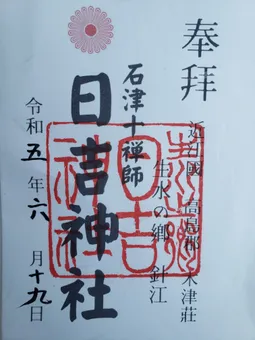 奉拝
近江國 高島郡 木津荘
生水の郷 針江
石津十禅師
日吉神社
令和五年六月十九日